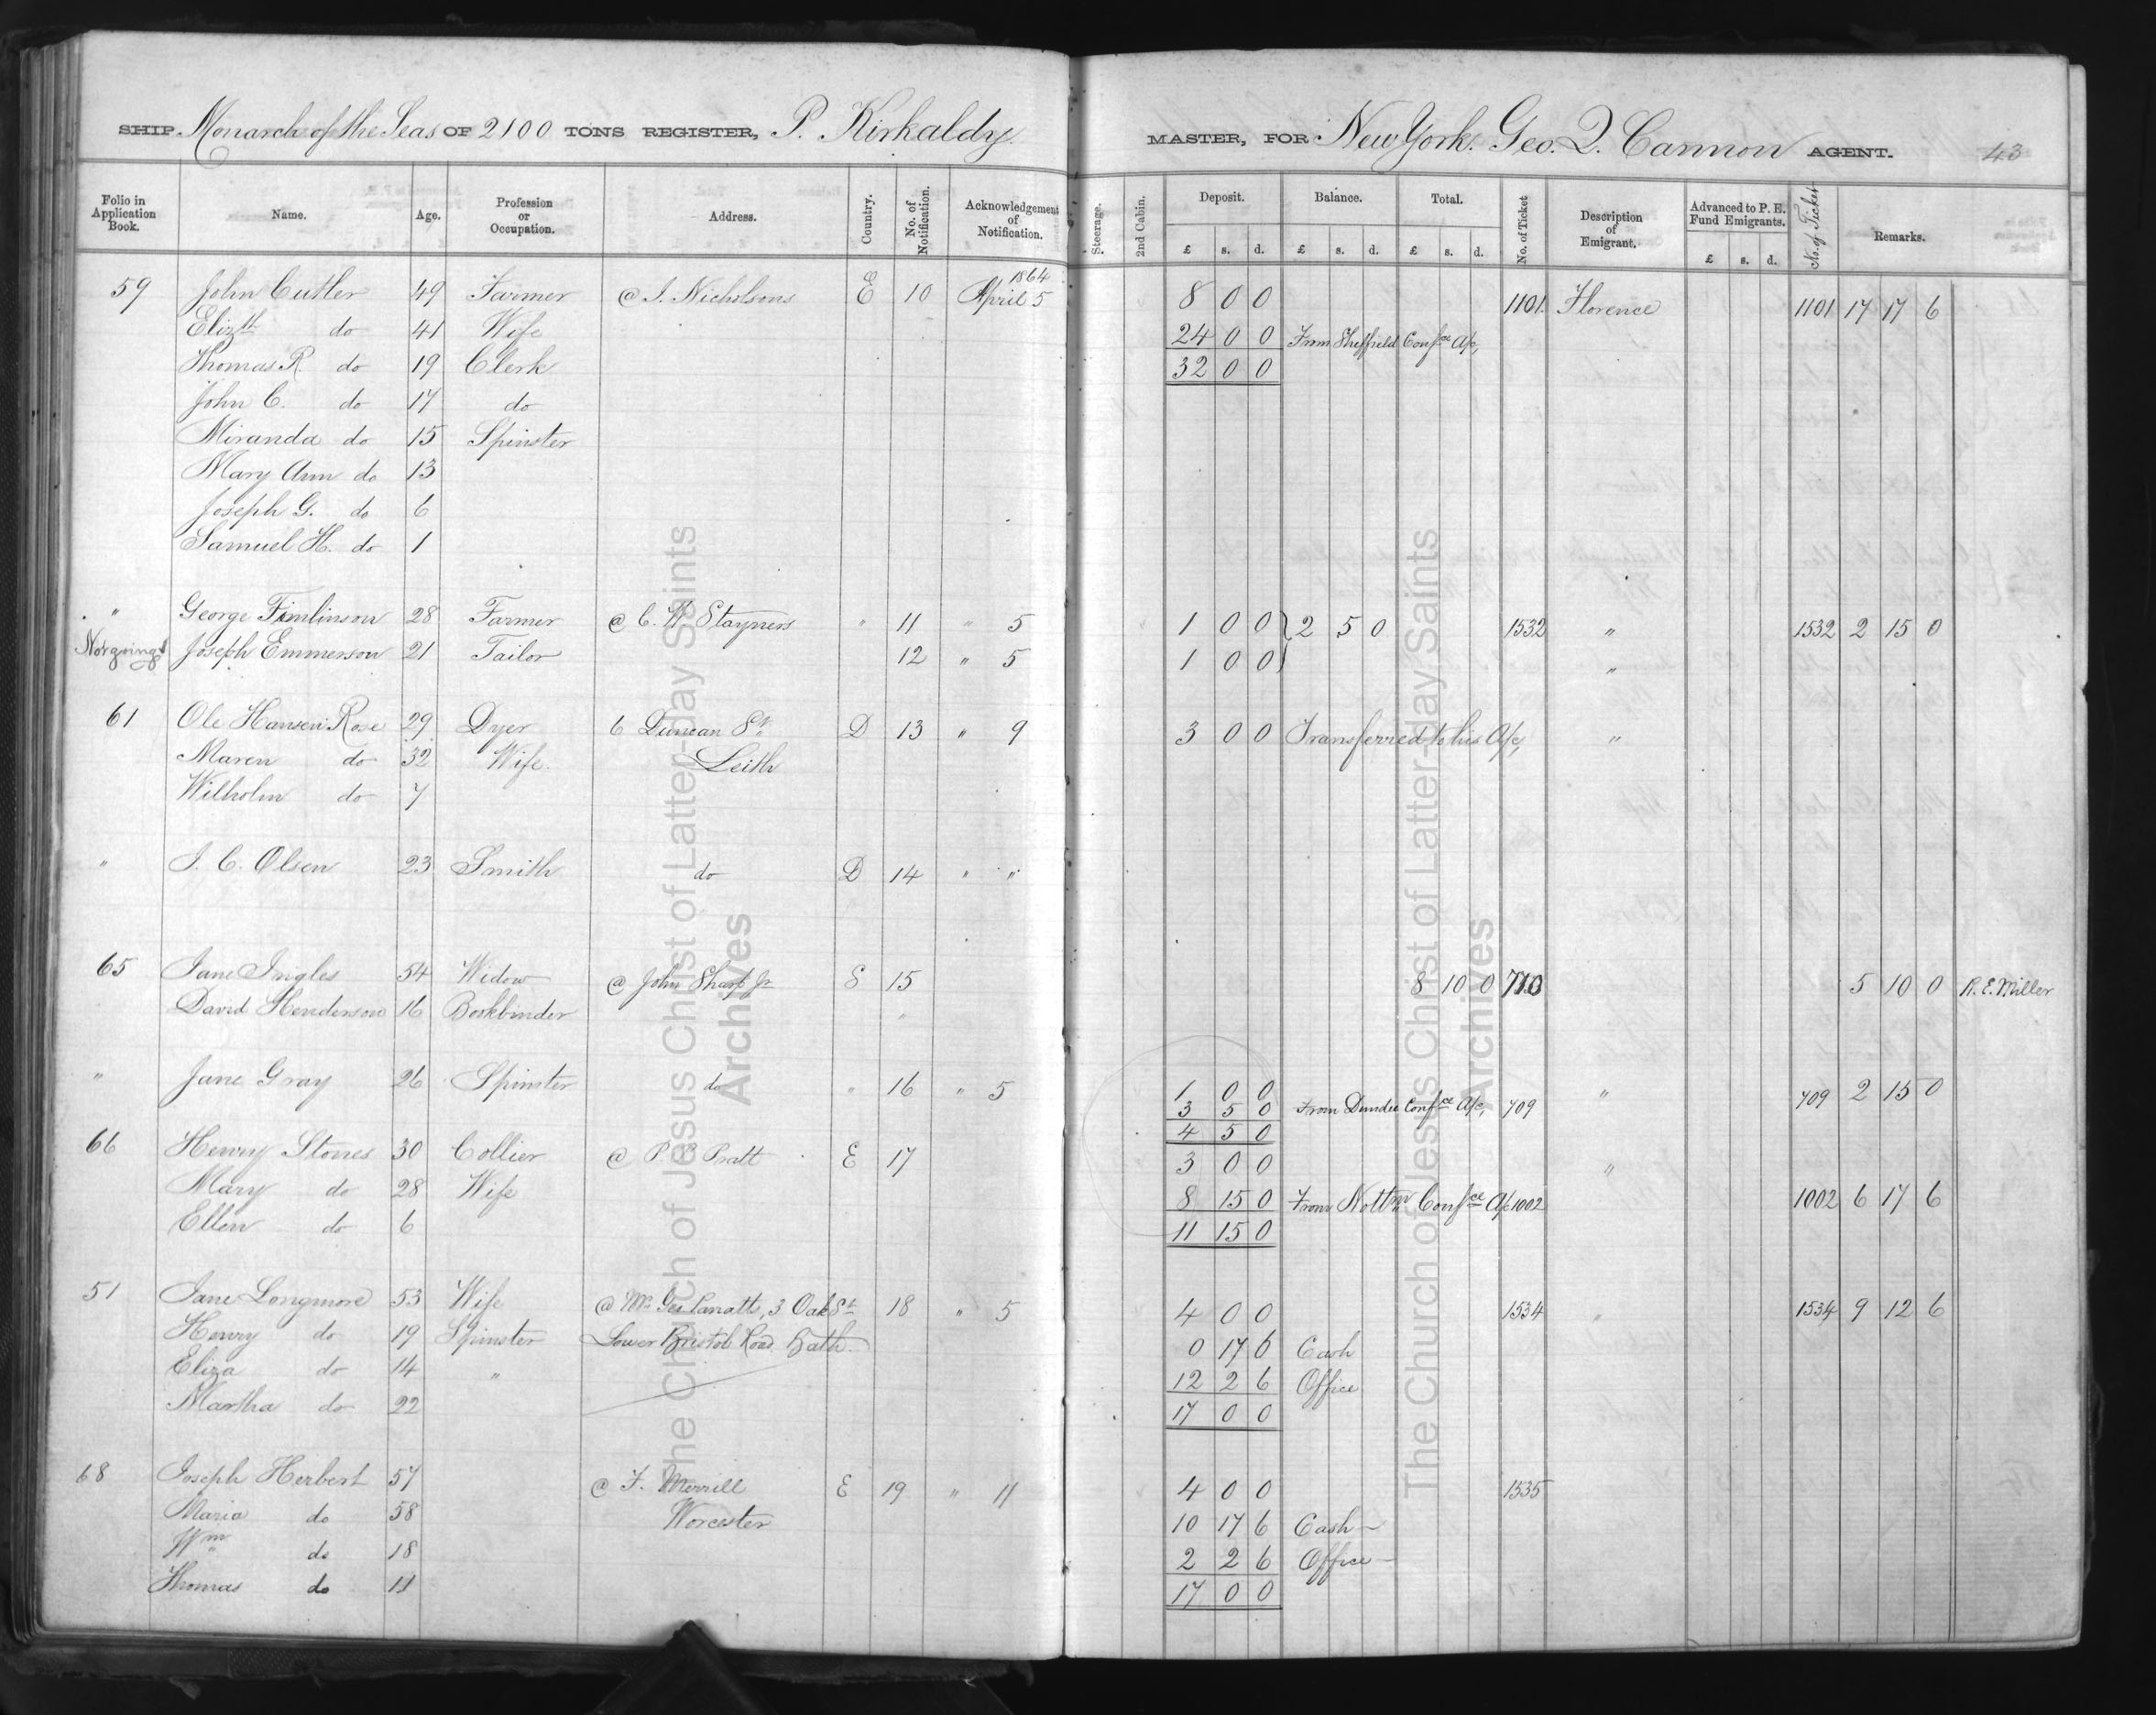 SHIP. Monarch of the Seas OF 2100 TONS REGISTER, P. Kirkaldy MASTER, FOR New York. Geo. Q. Cannon AGENT. 43
Folio in Application Book. Name. Age. Profession or Occupation. Address. Country. No. of Notification. Acknowledgement of Notification. Steerage. 2nd Cabin. Deposit. Balance. Total. No. of Ticket Description of Emigrant. Advanced to P. E. Fund Emigrants. No. of Ticket Remarks.
£ s. d. £ s. d. £ s. d. £ s. d.
1864
59 John Cutler 49 Farmer @ J. Nicholsons E 10 April 5 8 0 0 1101. Florence 1101 17 17 6
Elizth do 41 Wife 24 0 0 From Sheffield Confce A/c,
Thomas R do 19 Clerk 32 0 0
John C. do 17 do
Miranda do 15 Spinster
Mary Ann do 13
Joseph G. do 6
Samuel H. do 1
" George Timlinson 28 Farmer @ C. W. Stayners " 11 " 5 1 0 0 2 5 0 1532 " 1532 2 15 0
Not going Joseph Emmerson 21 Tailor 12 " 5 1 0 0 "
61 Ole Hansen Rose 29 Dyer 6 Duncan St. D 13 " 9 3 0 0 Transferred to his A/c, "
Maren do 32 Wife. Leith
Wilholm do 7
" J. C. Olsen 23 Smith do D 14 " "
65 Jane Ingles 54 Widow @ John Sharp Jr S 15 8 10 0 710 5 10 0 R. E. Miller
David Henderson 16 Bookbinder "
" Jane Gray 26 Spinster do " 16 " 5 1 0 0 " 2 15 0
3 5 0 From Dundee Confce A/c, 709 709
4 5 0
66 Henry Stones 30 Collier @ P. P. Pratt E 17 3 0 0 "
Mary do 28 Wife 8 15 0 From Nottm Confce A/c 1002 1002 6 17 6
Ellen do 6 11 15 0
51 Jane Longmore 53 Wife @ Mr. Geo Panatts, 3 Oak St. 18 " 5 4 0 0 1534 " 1534 9 12 6
Henry do 19 Spinster Lower Bristol Road. Bath. 0 17 6 Cash
Eliza do 14 " 12 2 6 Office
Martha do 22 17 0 0
68 Joseph Herbert 57 @ F. Merrill E 19 " 11 4 0 0 1535
Maria do 58 Worcester 10 17 6 Cash
Wm do 18 2 2 6 Office
Thomas do 11 17 0 0
The Church of Jesus Christ of Latter-day Saints
Archives
The Church of Jesus Christ of Latter-day Saints
Archives